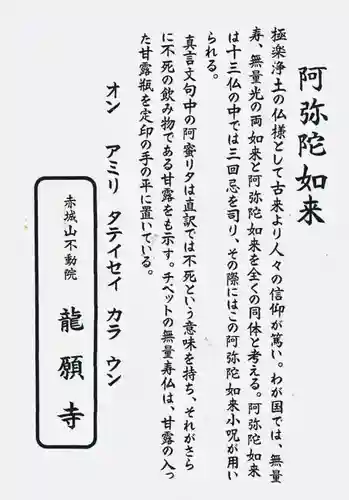 阿弥陀如来
極楽浄土の仏様として古来より人々の信仰が篤い。わが国では、無量
寿、無量光の両如来と阿弥陀如来を全くの同体と考える。阿弥陀如来
は十三仏の中では三回忌を司り、その際にはこの阿弥陀如来小呪が用い
られる。
真言文句中の阿蜜リタは直訳では不死という意味を持ち、それがさら
に不死の飲み物である甘露をも示す。チベットの無量寿仏は、甘露の入っ
た甘露瓶を定印の手の平に置いている。
オン アミリ タテイセイ カラ ウン
赤城山不動院
龍願寺